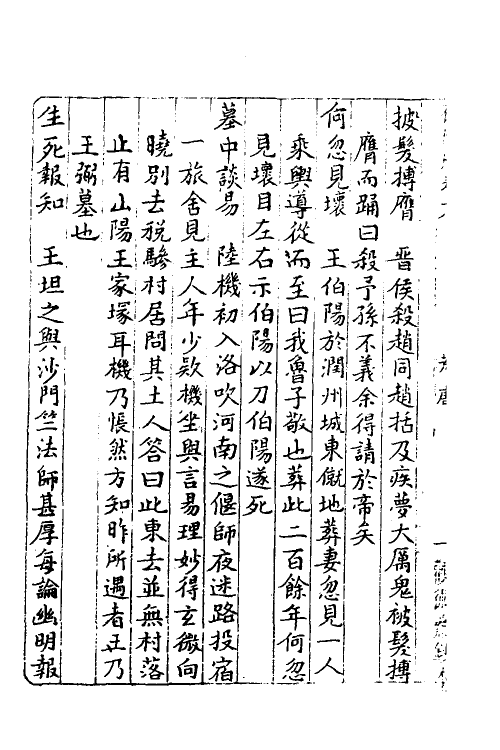 披髮搏膺　晋侯殺趙同趙括及疾夢大厲鬼被髮搏
膺而踊曰殺予孫不義余得請於帝矣
何忽見壞　王伯陽於潤州城東僦地葬妻忽見一人
乘輿導從而至曰我魯子敬也葬此二百餘年何忽
見壞目左右示伯陽以刀伯陽遂死
墓中談易　陸機初入洛吹河南之偃師夜迷路投宿
一旅舍見主人年少欵機坐與言易理妙得玄微向
曉別去税驂村居問其土人答曰此東去並無村落
止有山陽王家塚耳機乃悵然方知昨所遇者王乃
王弼墓也
生死報知　王坦之與沙門竺法師甚厚每論幽明報